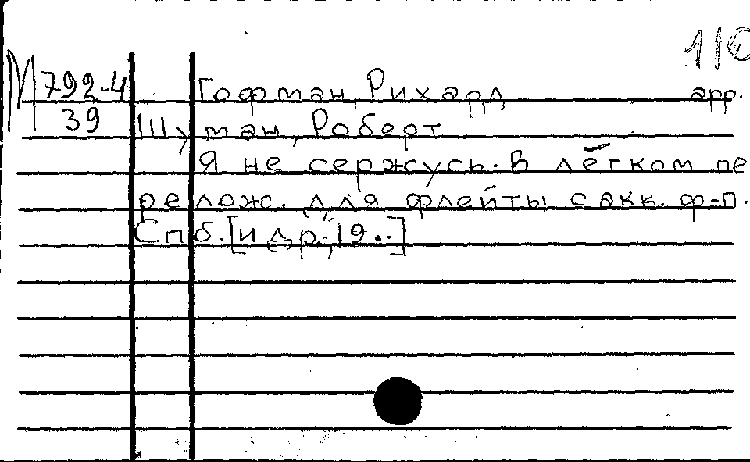 М 792-4
39
Гофман, Рихард арр.
Шуман, Роберт
Я не сержусь. В лёгком пе
релож. для флейты с акк. ф-п.
Спб. [и др., 19..]